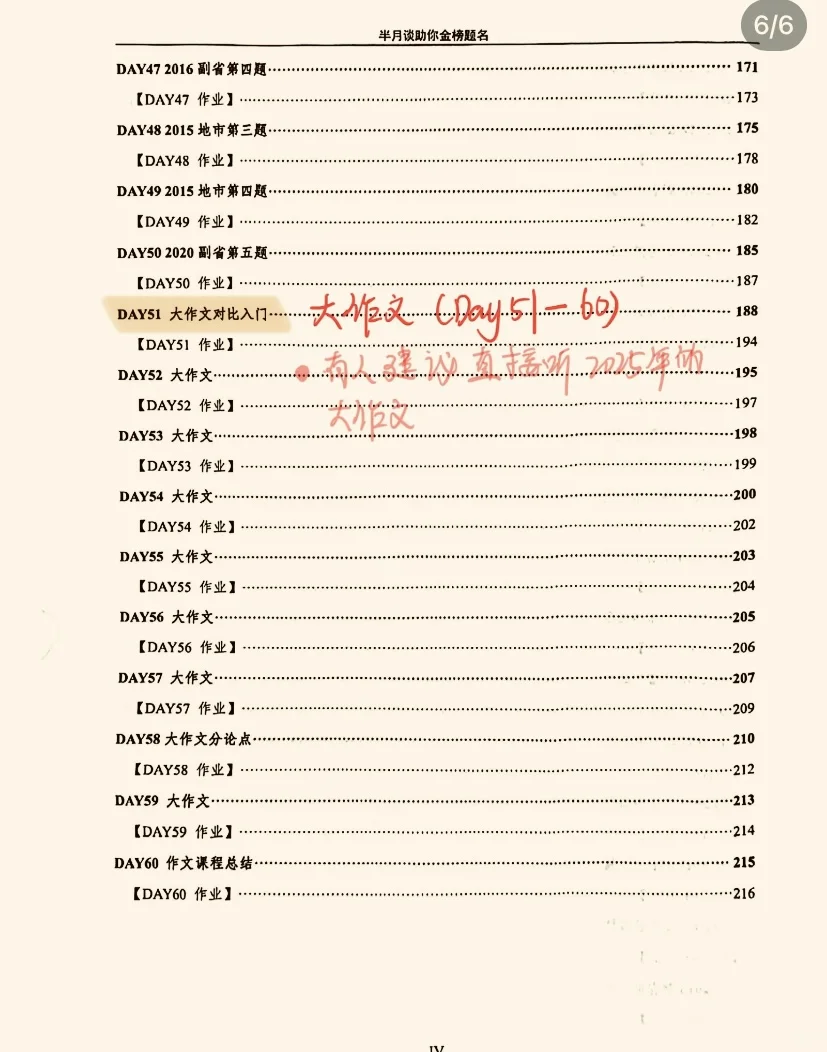 6/6
半月谈助你金榜题名
DAY47 2016 副省第四题 171
【DAY47 作业】 173
DAY48 2015 地市第三题 175
【DAY48 作业】 178
DAY49 2015 地市第四题 180
【DAY49 作业】 182
DAY50 2020 副省第五题 185
【DAY50 作业】 187
DAY51 大作文对比入门 188
大作文(Day51-60)
【DAY51 作业】 194
• 有人建议直接听2025年的
DAY52 大作文 195
【DAY52 作业】 197
大作文
DAY53 大作文 198
【DAY53 作业】 199
DAY54 大作文 200
【DAY54 作业】 202
DAY55 大作文 203
【DAY55 作业】 204
DAY56 大作文 205
【DAY56 作业】 206
DAY57 大作文 207
【DAY57 作业】 209
DAY58 大作文分论点 210
【DAY58 作业】 212
DAY59 大作文 213
【DAY59 作业】 214
DAY60 作文课程总结 215
【DAY60 作业】 216
IV